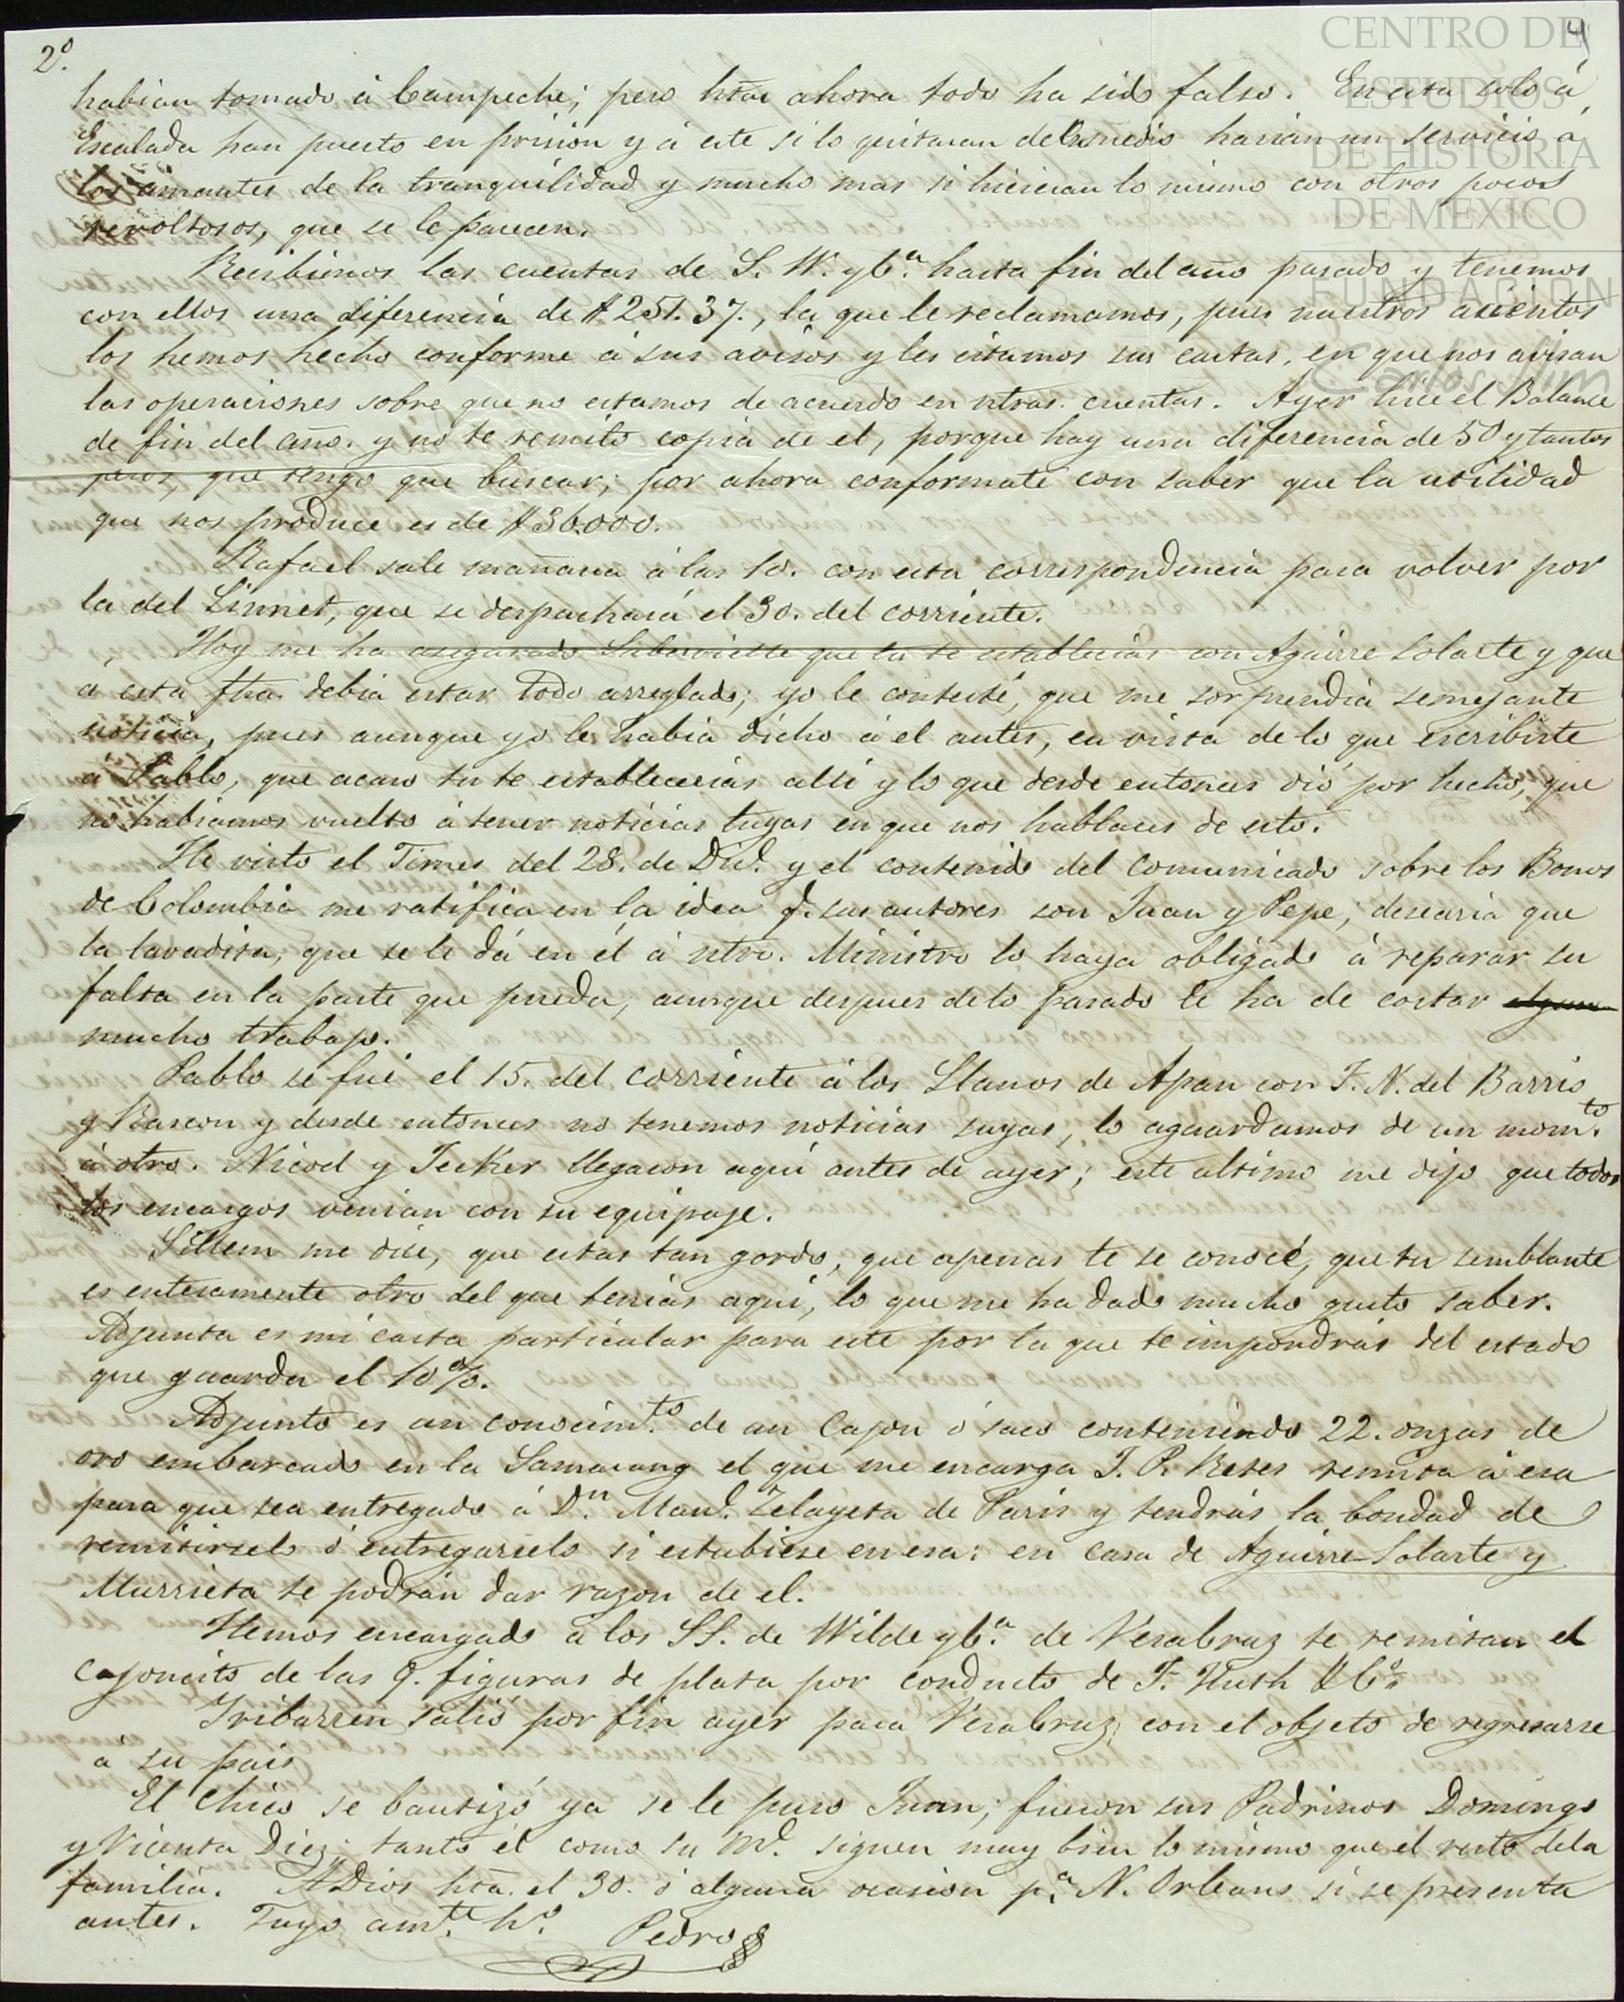 2º.
4
CENTRO DE
ESTUDIOS
DE HISTORIA
DE MEXICO
FUNDACION
Carlos Slim
habian tomado á Campeche; pero hta ahora todo ha sido falso. En esta solo á
Escalada han puesto en prision y á este si lo quitaran del medio harian un servicio á
los amantes de la tranquilidad y mucho mas si hicieran lo mismo con otros pocos
revoltosos, que se le parecen.
Recibimos las cuentas de S. W. y Cª. hasta fin del año pasado y tenemos
con ellos una diferencia de $251.37., la que le reclamamos, pues nuestros asientos
los hemos hecho conforme á sus avisos y les citamos sus cartas, en que nos avisan
las operaciones sobre que no estamos de acuerdo en ntras. cuentas. Ayer hice el Balance
de fin del año. y no te remito copia de el, porque hay una diferencia de 50 y tantos
pesos, que tengo que buscar; por ahora conformate con saber que la utilidad
que nos produce es de $36.000.
Rafael sale mañana á las 10. con esta correspondencia para volver por
la del Linnet, que se despachará el 30. del corriente.
Hoy me ha asegurado que tu te establecias con Aguirre Solarte y que
a esta fha. debia estar todo arreglado; yo le contesté, que me sorprendia semejante
noticia, pues aunque yo le habia dicho á el antes, en vista de lo que escribiste
a Pablo, que acaso tu te establecerias alli y lo que desde entonces dió por hecho, que
no habiamos vuelto á tener noticias tuyas en que nos hablases de esto.
He visto el Times del 28. de Dice. y el contenido del comunicado sobre los Bonos
de Colombia me ratifica en la idea q. sus autores son Juan y Pepe; desearia que
la lavadita, que se le dá en él á ntro. Ministro lo haya obligado á reparar su
falta en la parte que pueda, aunque despues de lo pasado le ha de costar
mucho trabajo.
Pablo se fué el 15. del corriente á los Llanos de Apan con F. N. del Barrio
y Bascon y desde entonces no tenemos noticias suyas, lo aguardamos de un mom.to
á otro. Nicod y Jecker llegaron aqui antes de ayer; este ultimo me dijo que todos
los encargos venian con su equipaje.
Sillem me dice, que estas tan gordo, que apenas te se conoce, que tu semblante
es enteramente otro del que tenias aqui, lo que me ha dado mucho gusto saber.
Adjunta es mi carta particular para este por la que te impondrás del estado
que guarda el 10%.
Adjunto es un conocim.to de un Cajon ó saco conteniendo 22. onzas de
oro embarcado en la Samarang el que me encarga J. P. Reter remita á esa
para que sea entregado á Dn. Manl. Zelayeta de Paris y tendrás la bondad de
remitirselo ó entregarselo si estubiese en esa: en casa de Aguirre Solarte y
Murrieta te podrán dar razon de el.
Hemos encargado a los SS. de Wilde y Cª. de VeraCruz te remitan el
cajoncito de las 9. figuras de plata por conducto de F. Huth & Cº.
Iribarren salió por fin ayer para VeraCruz con el objeto de regresarse
á su pais
El Chico se bautizó ya se le puso Juan; fueron sus Padrinos Domingo
y Vicenta Diez; tanto él como su Me. siguen muy bien lo mismo que el resto de la
familia. A Dios hta. el 30. ó alguna ocasion p.ª N. Orleans si se presenta
antes. Tuyo am.te hº.
Pedro